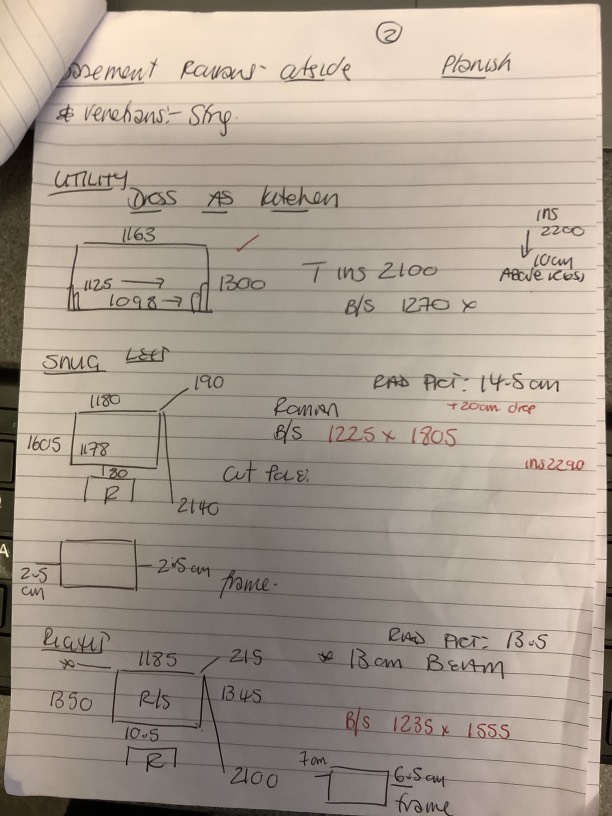 ②
asement Romans - outside Planish
& Venetians:- Stry.
UTILITY
Does AS kitchen
1163
1125 → 1300
1098 →
T ins 2100
B/S 1270 x
ins
2200
10cm
ABOVE
SNUG LEFT
RAD PROJ: 14.5cm
190
1180
Roman
+20cm drop
B/S 1225 x 1805
1605
1178
ins 2290
180
R
2140
2.5
cm
2.5cm frame.
RIGHT
RAD PROJ: 13.5
1185
215
* 13cm BEAM
1350
R/S
1345
B/S 1235 x 1555
10.5
R
2100
7cm
6.5cm
frame